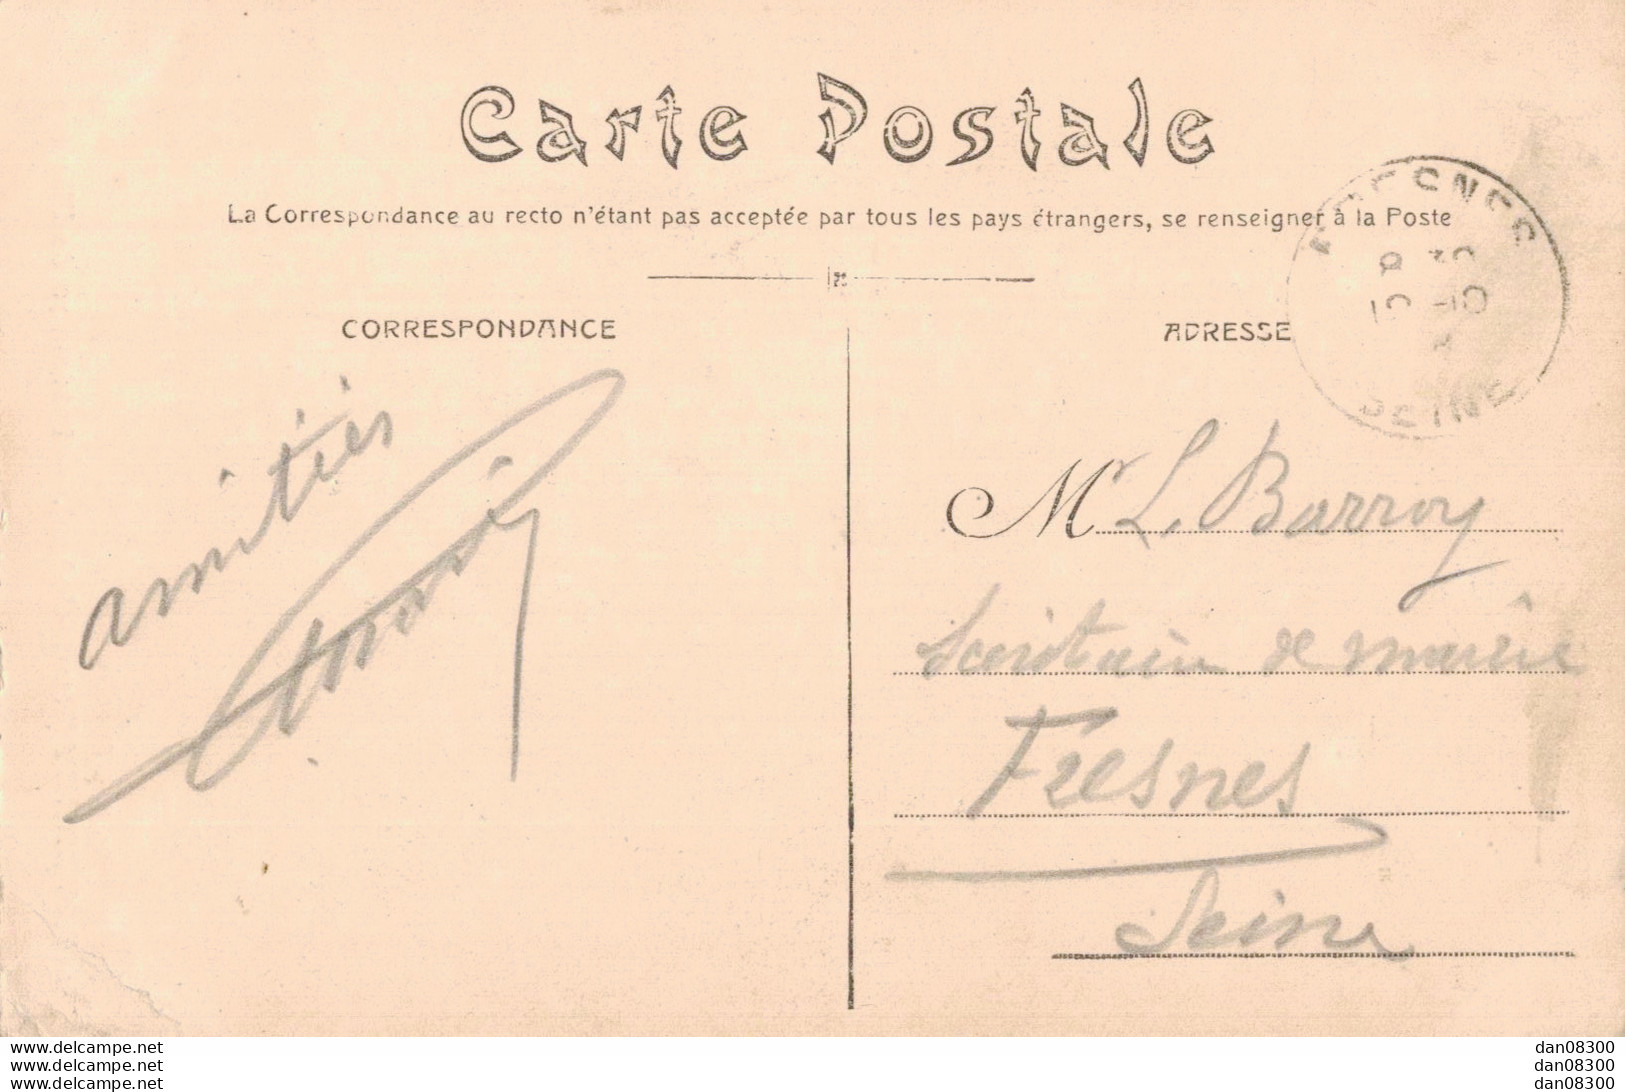 Carte Postale
La Correspondance au recto n'étant pas acceptée par tous les pays étrangers, se renseigner à la Poste
CORRESPONDANCE
ADRESSE
FRESNES
SEINE
amitiés
Mr L. Barroy
Secrétaire de mairie
Fresnes
Seine
www.delcampe.net
www.delcampe.net
www.delcampe.net
dan08300
dan08300
dan08300